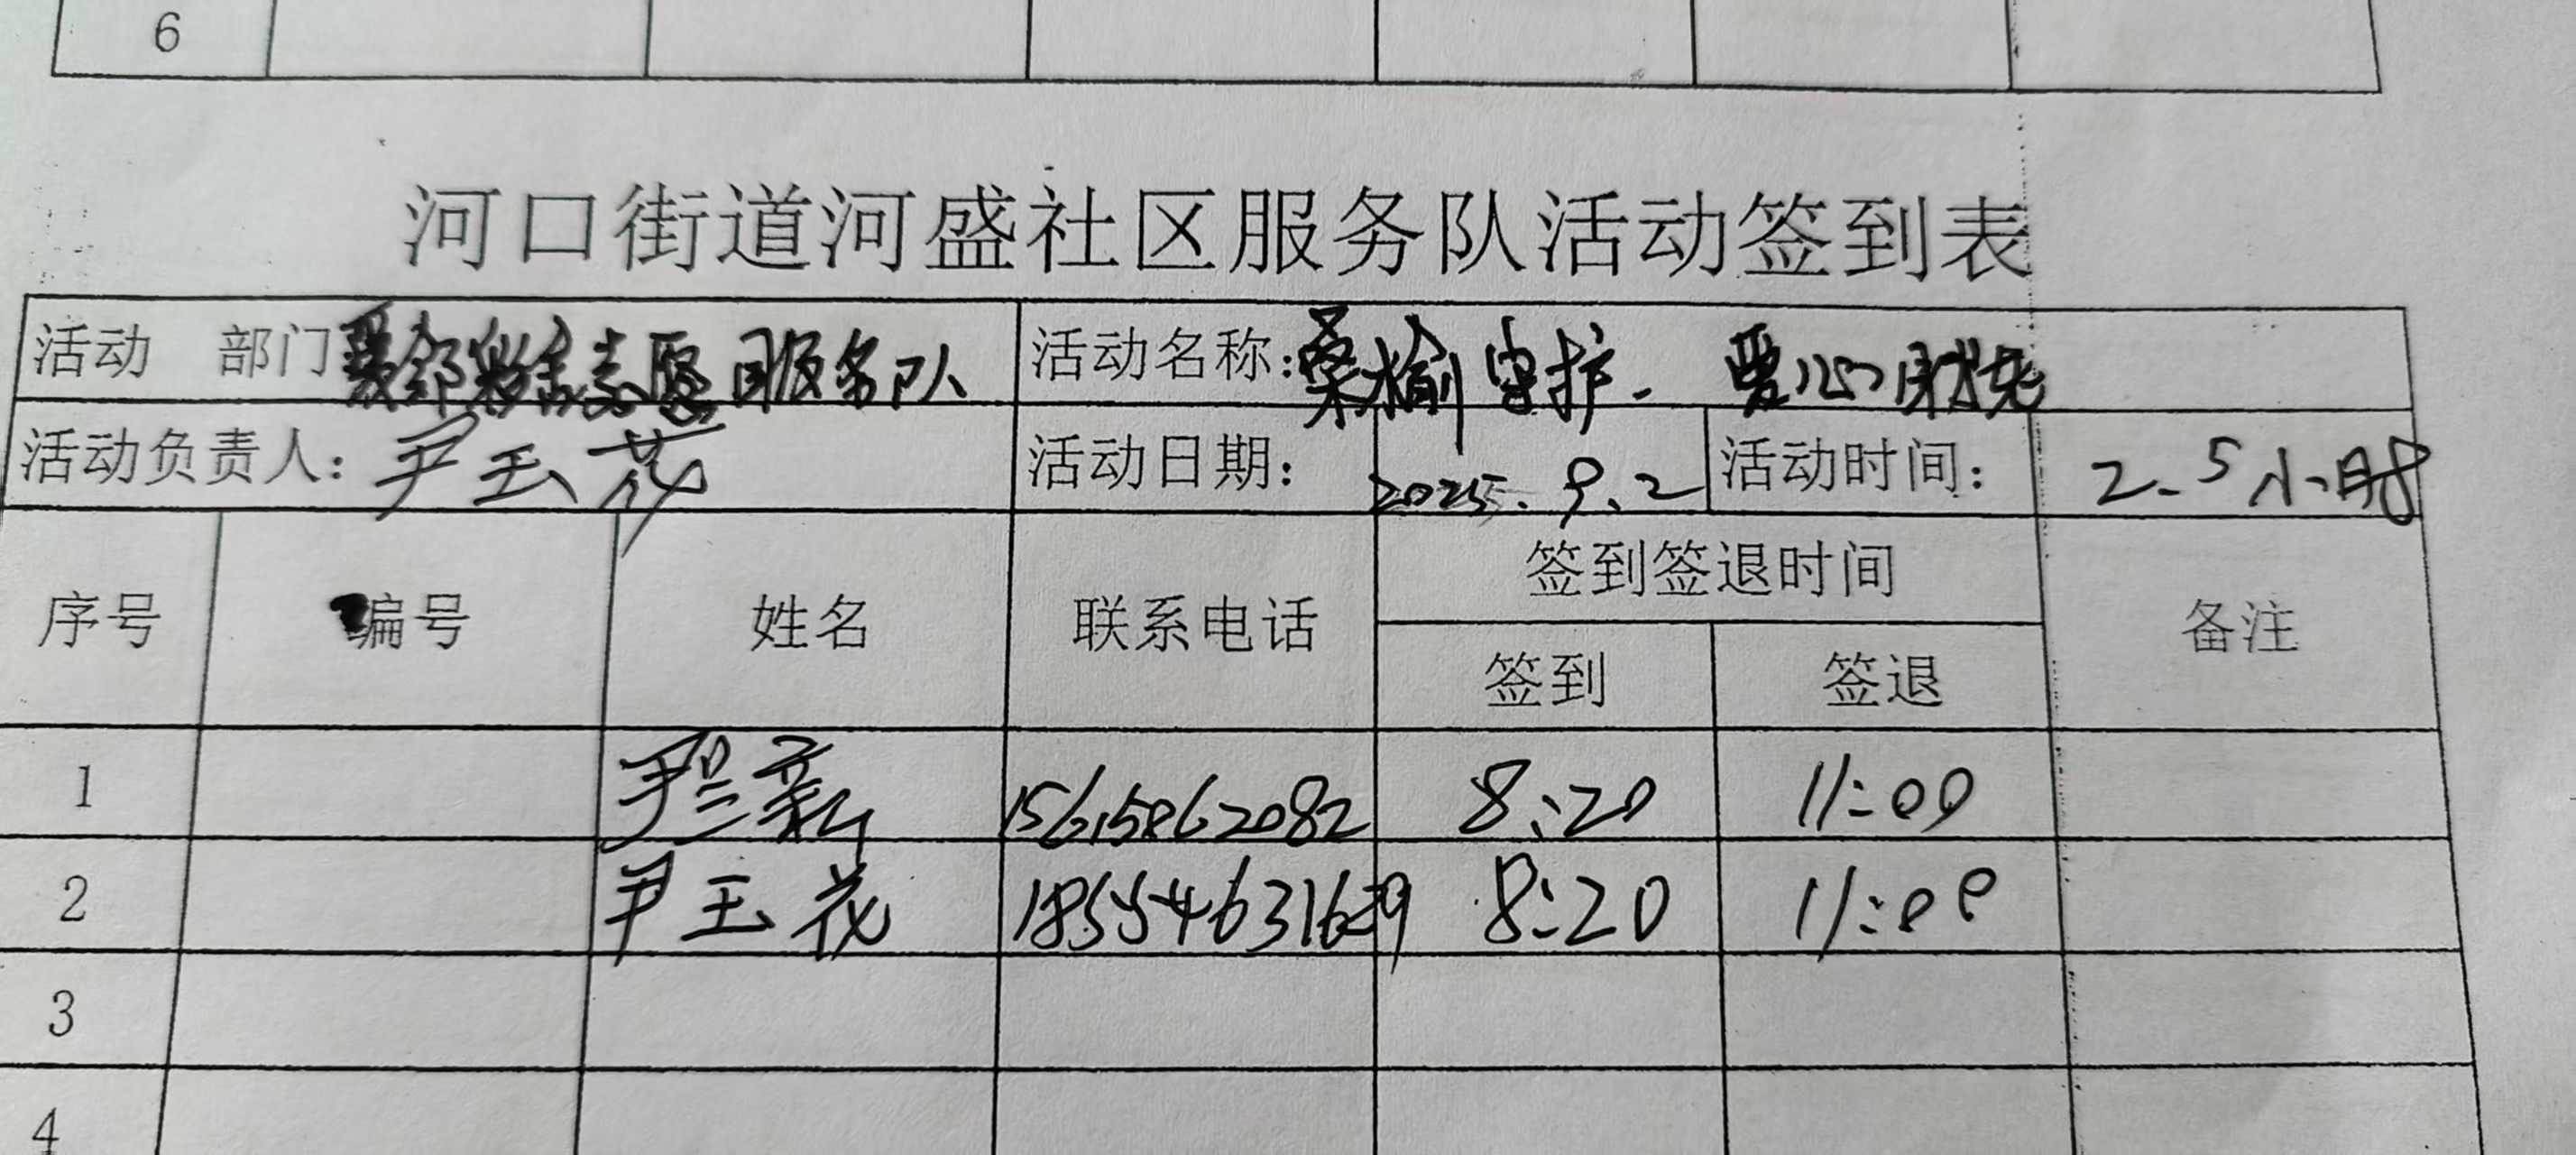 6
河口街道河盛社区服务队活动签到表
活动 部门 爱邻 志愿服务队 活动名称:桑榆守护. 爱心助老
活动负责人: 尹玉花 活动日期: 2025.9.2 活动时间: 2.5小时
序号 编号 姓名 联系电话 签到签退时间 备注
签到 签退
1 尹兰新 15615062082 8:20 11:00
2 尹玉花 8:20 11:00
3
4